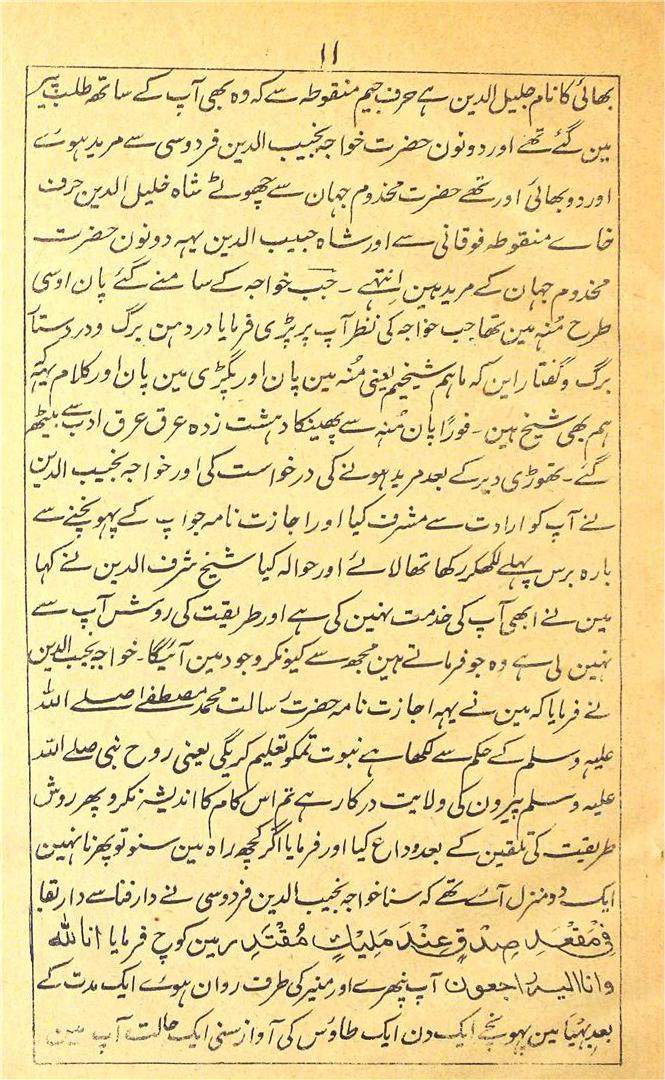 ۱۱
بھائی کا نام جلیل الدین ہے حرف جیم منقوطہ سے کہ وہ بھی آپ کے ساتھ طلب پیر
مین گئے تھے اور دونون حضرت خواجہ نجیب الدین فردوسی سے مرید ہوے
اور دو بھائی اور تھے حضرت مخدوم جہان سے چھوٹے شاہ خلیل الدین حرف
خاے منقوطہ فوقانی سے اور شاہ حبیب الدین یہہ دونون حضرت
مخدوم جہان کے مرید ہین انتہے ۔ جب خواجہ کے سامنے گئے پان اوسی
طرح مُنہ مین تھا جب خواجہ کی نظر آپ پر پڑی فرمایا در دہن برگ و در دستار
برگ و گفتار این کہ ما ہم شیخیم یعنی مُنہ مین پان اور پگڑی مین پان اور کلام یہہ کہ
ہم بھی شیخ ہین ۔ فورًا پان مُنہ سے پھینکا دہشت زدہ عرق عرق ادب سے بیٹھ
گئے ۔ تھوڑی دیر کے بعد مرید ہونے کی درخواست کی اور خواجہ نجیب الدین
نے آپ کو ارادت سے مشرف کیا اور اجازت نامہ جو آپ کے پہونچنے سے
بارہ برس پہلے لکھکر رکھا تھا لائے اور حوالہ کیا شیخ شرف الدین نے کہا
مین نے ابھی آپ کی خدمت نہین کی ہے اور طریقت کی روش آپ سے
نہین لی ہے وہ جو فرماتے ہین مجھ سے کیونکر وجود مین آئیگا ۔ خواجہ نجیب الدین
نے فرمایا کہ مین نے یہہ اجازت نامہ حضرت رسالت محمد مصطفےٰ صلے اللہ
علیہ وسلم کے حکم سے لکھا ہے نبوت تمکو تعلیم کریگی یعنی روح نبی صلے اللہ
علیہ وسلم پیرون کی ولایت درکار ہے تم اس کام کا اندیشہ نکرو پھر روش
طریقت کی تلقین کے بعد وداع کیا اور فرمایا اگر کچھ راہ مین سنو تو پھرنا نہین
ایک دو منزل آے تھے کہ سنا خواجہ نجیب الدین فردوسی نے دار فنا سے دار بقا
فِیْ مَقْعَدِ صِدْقٍ عِنْدَ مَلِیْكٍ مُقْتَدِر مین کوچ فرمایا انا للہ
وانا الیہ راجعون آپ نپھرے اور منیر کی طرف روان ہوے ایک مدت کے
بعد بہیا مین پہونچے ایک دن ایک طاوس کی آواز سنی ایک حالت آپ مین